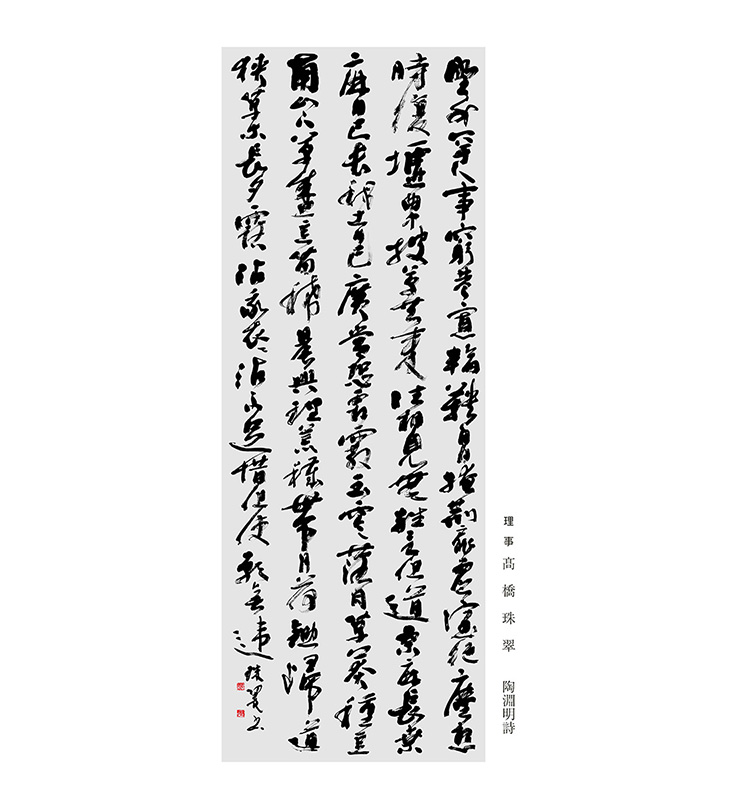 野外罕人事窮巷寡輪鞅白日掩荊扉虛室絕塵想
時復墟曲中披草共來往相見無雜言但道桑麻長桑
麻日已長我土日已廣常恐霜霰至零落同草莽種豆
南山下草盛豆苗稀晨興理荒穢帶月荷鋤歸道
狹草木長夕露沾我衣衣沾不足惜但使願無違 珠翠書
理事 髙橋珠翠 陶淵明詩